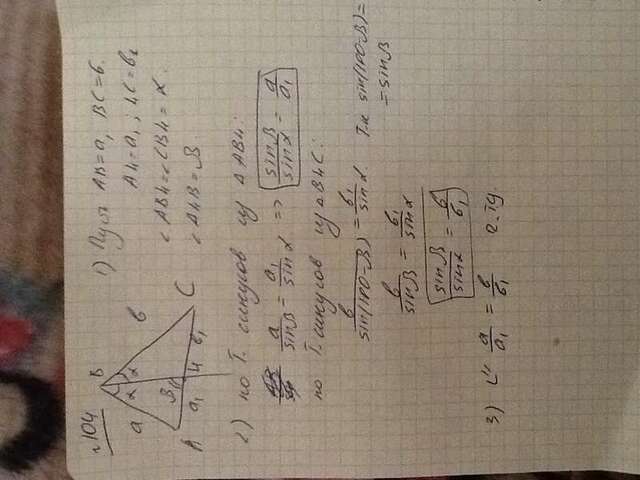 №104
B
a
α α
b
β
A
a₁
H
b₁
C
1) Пусть AB=a, BC=b.
AH=a₁; HC=b₁
∠ABH=∠CBH=α
∠AHB=β.
2) по Т. синусов из ΔABH:
a/sinβ = a₁/sinα => sinβ/sinα = a/a₁
по Т. синусов из ΔBHC:
b/sin(180-β) = b₁/sinα. Т.к sin(180-β)=
=sinβ
b/sinβ = b₁/sinα
sinβ/sinα = b/b₁
3) a/a₁ = b/b₁ ч.тд.